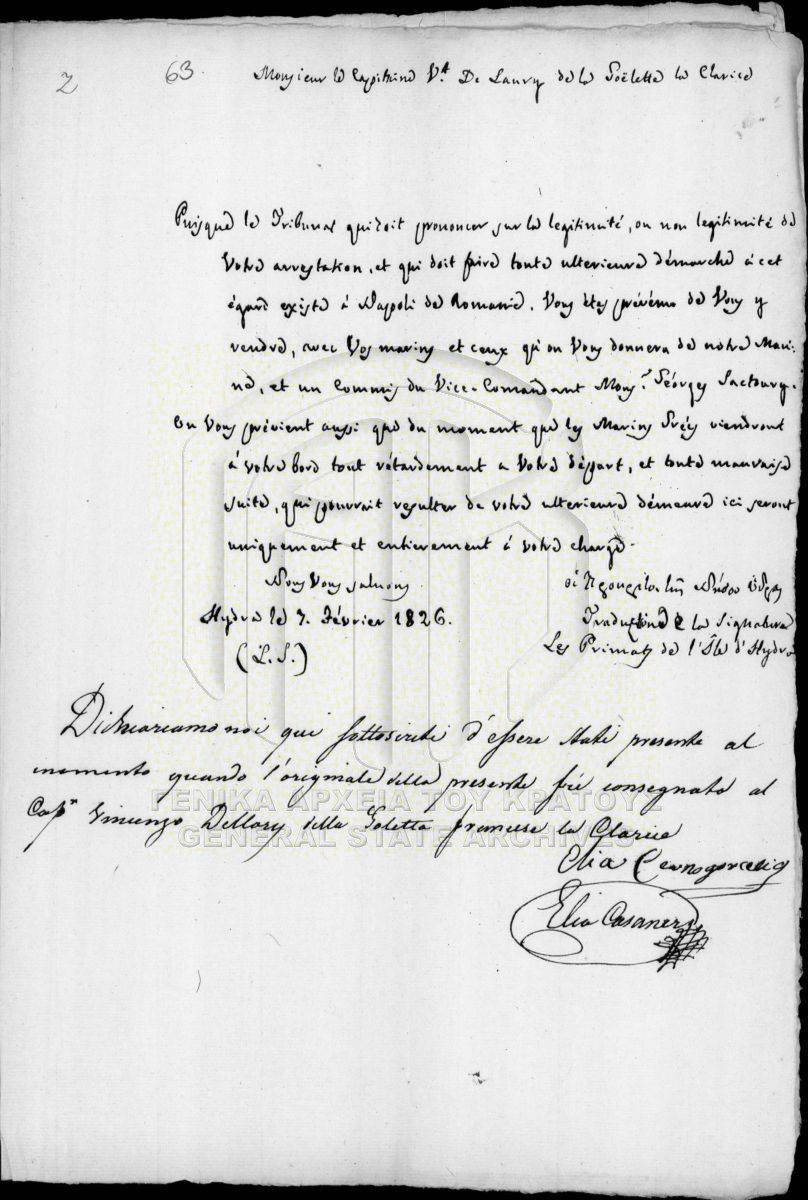 2 63. Monsieur le Capitaine V.t De Laury de la Goëlette la Clarice
Puisque le Tribunal qui doit prononcer sur la legitimité, ou non legitimité de
Votre arrestation, et qui doit faire toute ulterieure démarche à cet
égard existe à Napoli de Romanie. Vous êtes prévénu de Vous y
rendre, avec Vos marins et ceux qu'on Vous donnera de notre Mari-
ne, et un Commis du Vice-Comandant Mons.r Géorges Sactoury.
On Vous prévient aussi que du moment que les Marins Grécs viendront
à votre bord tout rétardement a Votre départ, et toute mauvaise
suite, qui pourrait resulter de votre ulterieure démeure ici seront
uniquement et entierement à votre charge.
Nous Vous saluons
οἱ Πρόκριτοι τῆς Νήσου Ὕδρας
Hydra le 3. Février 1826.
Traduction de la Signature
(L.S.)
Les Primats de l'Île d'Hydra
Dichiariamo noi qui sottoscritti d'essere stati presente al
momento quando l'originale della presente fù consegnata al
Cap.n Vincenzo Dellory della Goletta francese la Clarice
Elia
Elia Casaner
ΓΕΝΙΚΑ ΑΡΧΕΙΑ ΤΟΥ ΚΡΑΤΟΥΣ
GENERAL STATE ARCHIVES